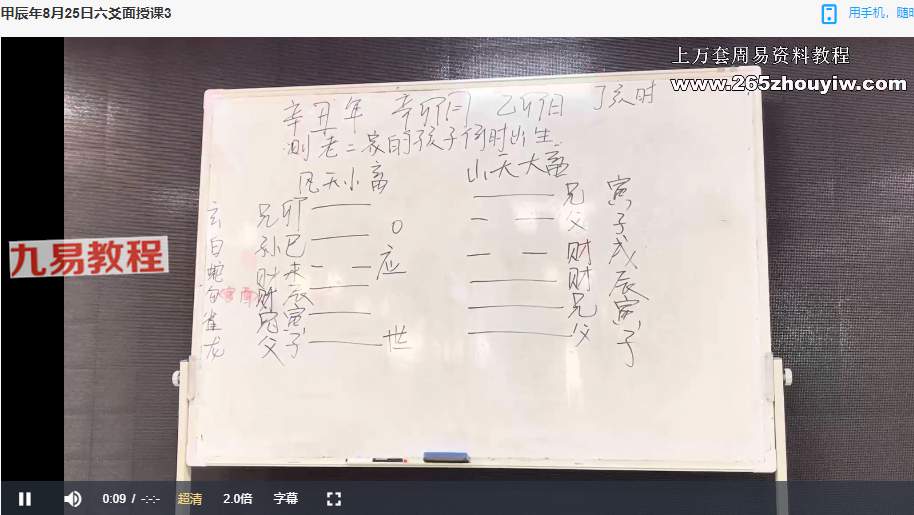 甲辰年8月25日六爻面授课3
用手机，随时
上万套周易资料教程
www.265zhouyiw.com
九易教程
辛丑年 辛卯月 乙卯日 丁亥时
测老二家的孩子何时出生
风天小畜 山天大畜
玄 兄卯 兄 寅
白 孙巳 O 父 子
蛇 财未 应 财 戌
勾 财辰 财 辰
雀 兄寅 兄 寅
龙 父子 世 父 子
0:09 / -:-:-
超清
2.0倍
字幕